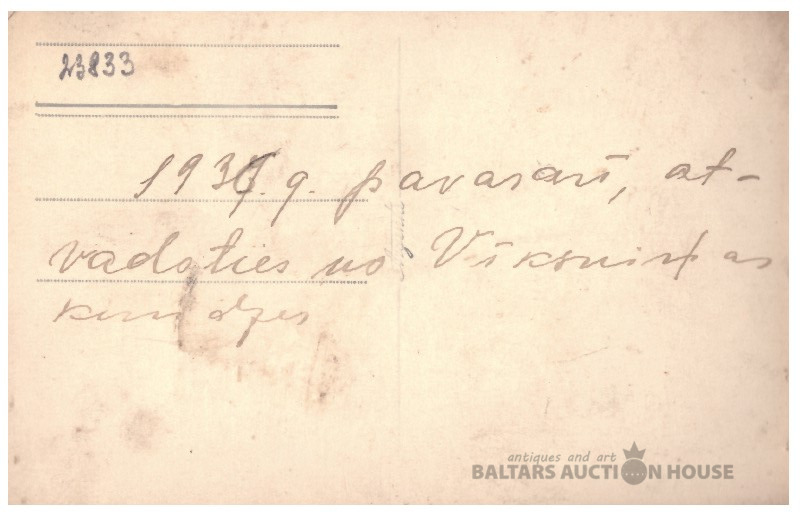 23833
193 . g. pavasarī, at-
vadoties no
kundzes
antiques and art
BALTARS AUCTION HOUSE